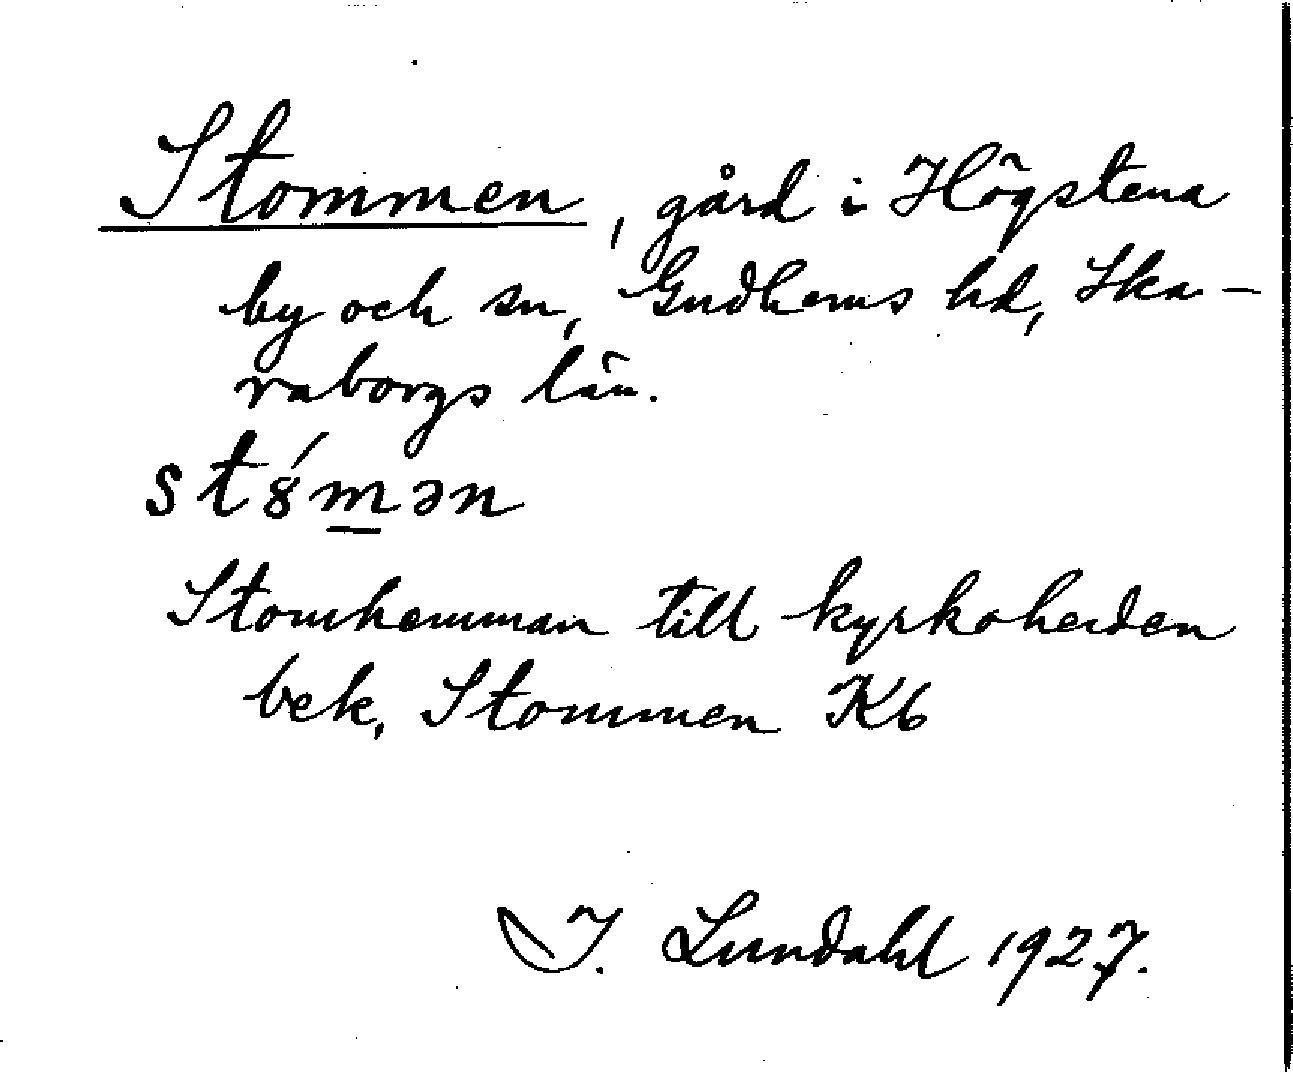 Stommen, gård i Högstena
by och sn, Gudhems hd, Ska-
raborgs län.
st8́mən
Stomhemman till kyrkoherden
bek, Stommen Kb
I. Lundahl 1927.